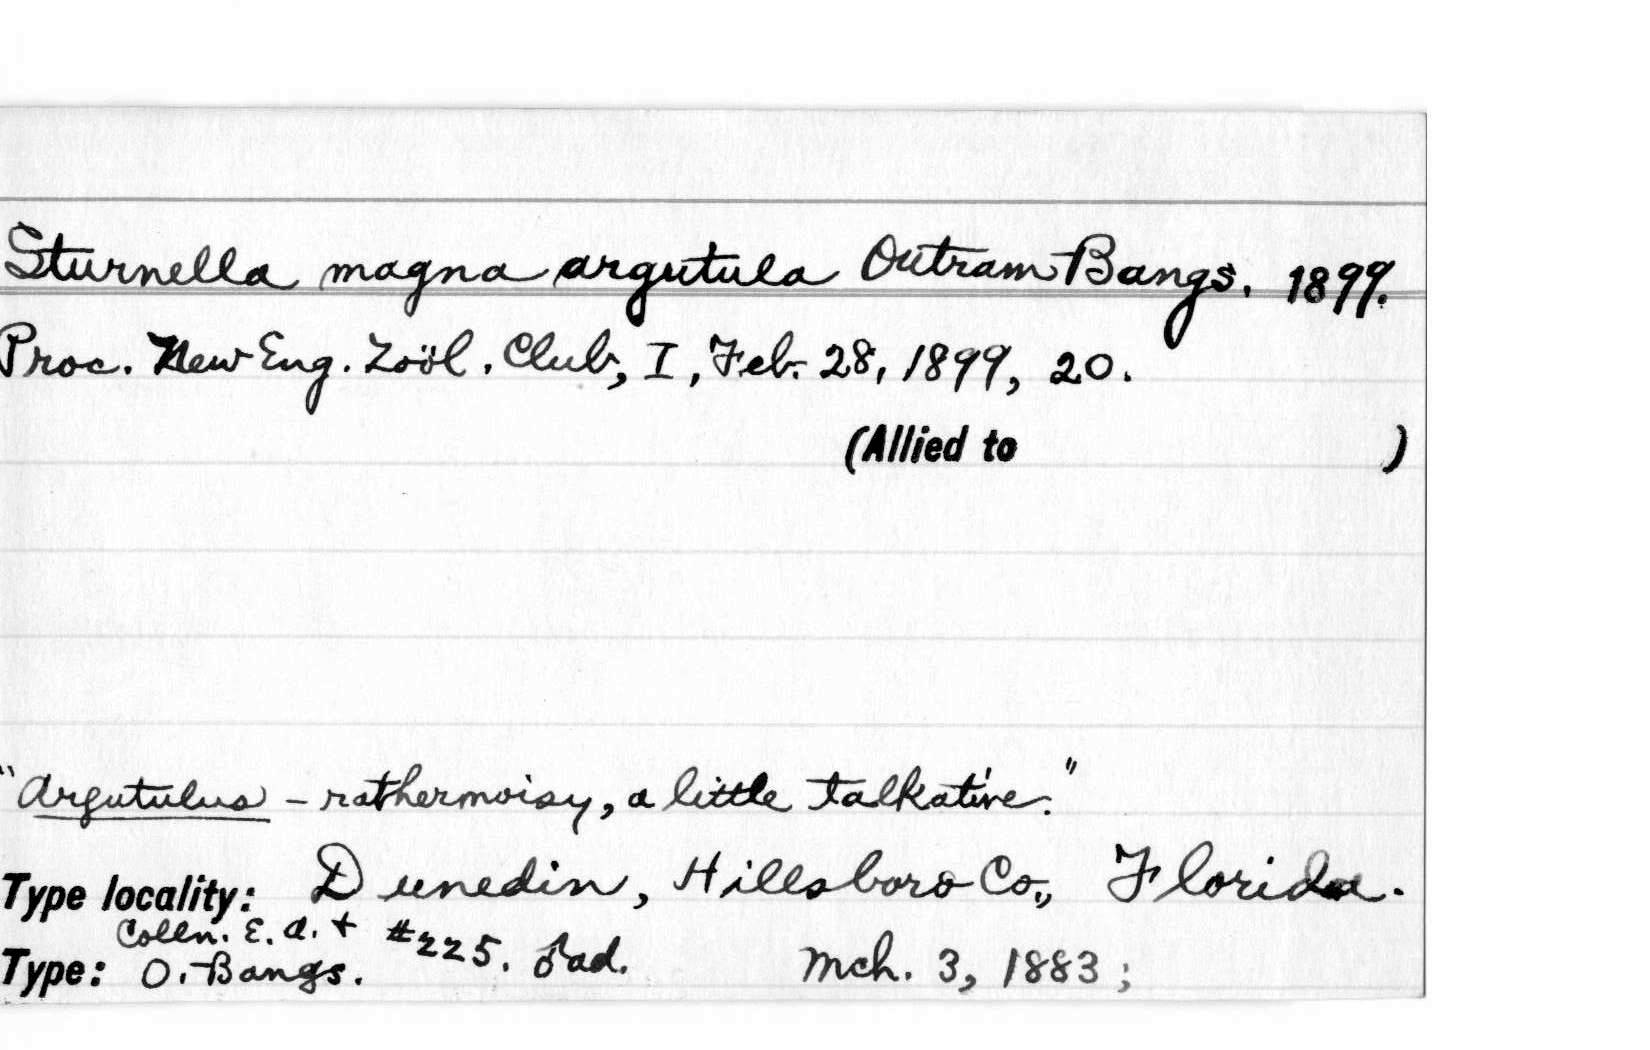 Sturnella magna argutula Outram Bangs. 1899.
Proc. New Eng. Zoöl. Club, I, Feb. 28, 1899, 20.
(Allied to )
"Argutulus - rather noisy, a little talkative."
Type locality: Dunedin, Hillsboro Co., Florida.
Colln. E. A. + #225. ♂ ad.
Type: O. Bangs. Mch. 3, 1883;